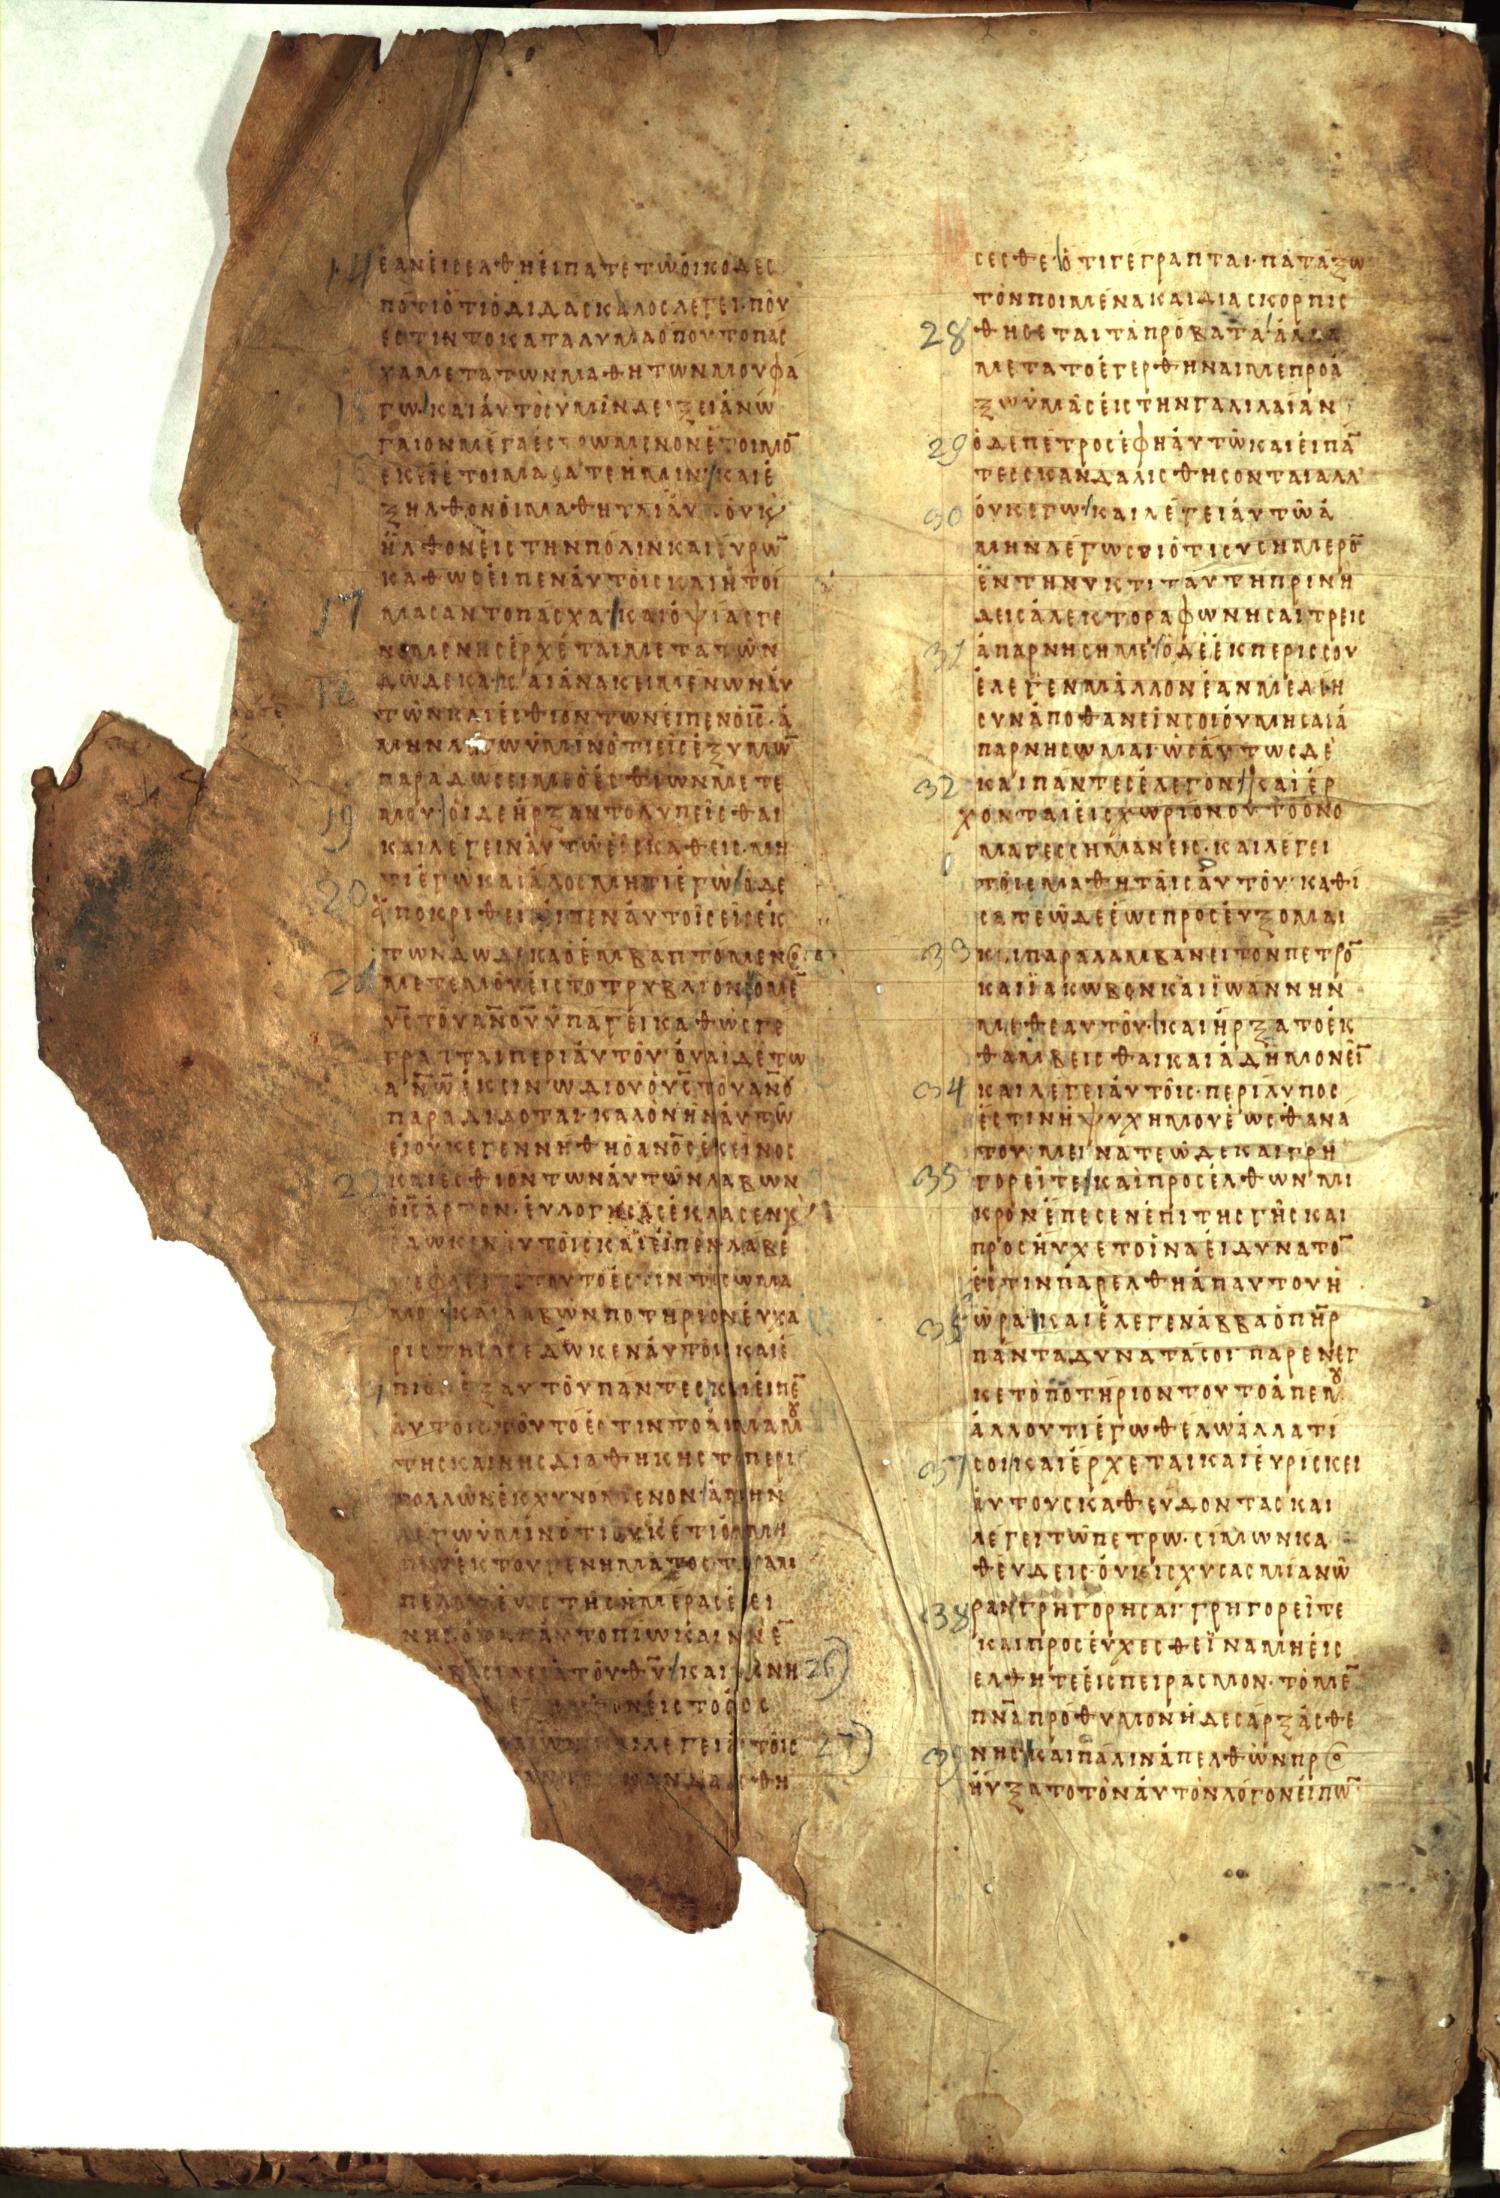 14 ἐὰν εἰσελθη εἰπατε τῶ οἰκοδεσ
ποτι ὁτι ὁ διδασκαλος λεγει· ποὺ
εστιν το καταλυμα ὁπου το πας
χα μετα των μαθητων μου φά
15 γω / καὶ ἀυτὸς ὑμῖν δειξει ἀνώ
γαιον μέγα εστρωμενον ἑτοιμο̅
16 εκει ἑτοιμασατε ἡμιν· / και ἐ
ξηλθον ὁι μαθηται ἀυ
ἦλθον εἰς την πόλιν και ευρω̅
καθως εἰπεν ἀυτοις και ἡτοί
17 μασαν το πάσχα / και ὀψίας γε
νομενης ἐρχεται μετα τῶν
δώδεκα / καὶ ἀνακειμενων ἀυ
τῶν και ἐσθιοντων εἰπεν ὁ ι̅ς̅· ἀ
μην λεγω ὑμῖν ὁτι εἱς ἐξ υμω̅
παραδώσει με ὁ ἐσθιων μετε
19 μου / ὁι δε ἠρξαντο λυπεῖσθαι
και λέγειν ἀυτῶ εἱς καθεις· μη
20 τι ἐγω και ἀλος μητι ἐγω / ὁ δε
ἀποκριθεις εἰπεν ἀυτοις εἱς ἐκ
των δωδεκα ὁ ἐμβαπτόμενος
21 μετ εμου εἰς το τρυβλιον / ὁ με̅
υ̅ς̅ τοῦ α̅ν̅ο̅υ̅ ὑπαγει καθως γε
γραπται περι ἀυτοῦ· ὀυαι δε τω
α̅ν̅ω̅ ἐκεινω δι ου ὁ υ̅ς̅ τοῦ α̅ν̅ο̅υ̅
παραδιδοται· καλὸν ἦν ἀυτῶ
εἰ ουκ εγεννηθη ὁ α̅ν̅ο̅ς̅ ἐκεῖνος
22 και εσθιοντων ἀυτῶν λαβων
ὁ ι̅ς̅ ἀρτον· ἐυλογησας ἐκλασεν κ
εδωκεν ἀυτοις και εἰπεν λαβε
τε φαγετε τουτο ἐστιν το σωμα
μου / και λαβὼν ποτήριον ἐυχα
ριστησας ἐδωκεν ἀυτοις και ἐ
πιον ἐξ αυτοῦ παντες και εἰπε̅
ἀυτοις· τοῦτο ἐστιν το ἁιμα μου
της καινης διαθηκης το περι
πολλῶν ἐκχυνομενον / ἀμην
λεγω ὑμῖν ὁτι ουκετι ὀυ μη
πιω ἐκ του γενηματος τ
πελου ἑως της ἡμέρας ἐ ει
νης· ὁταν ἀυτο πίω καινὸ
βασιλεια τοῦ θ̅υ̅ / και ὑμνη 26)
εξηλθον εἰς το ὀρος
λεγει αυτοῖς 27)
σκανδαλισθη
σεσθε· / ὁτι γεγραπται· πατάξω
τὸν ποιμένα και διασκορπισ
28 θησεται τὰ πρόβατα / ἀλλα
μετα το ἐγερθηναι με προά
ξω ὑμᾶς εἰς την γαλιλαίαν
29 ὁ δε πετρος ἐφη ἀυτῶ και εἰ πα̅
τες σκανδαλισθησονται αλλ
30 ὀυκ εγω / και λέγει ἀυτῶ ἀ
μην λέγω σοι ὁτι συ σημερο̅
ἐν τη νυκτι ταυτη πριν ἠ
δεις ἀλεκτορα φωνησαι τρεις
31 ἀπαρνηση με / ὁ δὲ ἐκ περισσου
ἐλεγεν μαλλον ἐαν με δεη
συναποθανεῖν σοι ὀυ μη σαι ἀ
παρνησωμαι· ὡσάυτως δὲ
32 και παντες ἐλεγον / και ἐρ
χονται εἰς χωριον ου το ονο
μα γεσσημανεις· και λεγει
τοῖς μαθηταῖς ἀυτοῦ· καθί
σατε ὧδε ἑως προσέυξομαι
33 και παραλαμβανει τον πετρο̅
και ϊακωβον και ϊωαννην
μεθ εαυτοῦ· / και ἠρξατο ἐκ
θαμβεισθαι και ἀδημονεῖ̅
34 και λεγει ἀυτοῖς· περιλυπος
ἐστιν ἡ ψυχη μου ἑως θανα
του· μεινατε ὧδε και γρη
35 γορεῖτε / και προσέλθων μι
κρον ἐπεσεν ἐπι της γῆς και
προσήυχετο ἱνα εἰ δυνατο̅
ἐστιν παρελθη ἀπ αυτου ἡ
36 ὡρα / και ἐλεγεν ἀββα ὁ π̅η̅ρ̅
παντα δυνατα σοι παρενεγ
κε τὸ ποτηριον τουτο ἀπ εμου
ἀλλ ου τι ἐγω θελω ἀλλα τι
37 σοι / και ἐρχεται και ἑυρίσκει
ἀυτους καθεύδοντας και
λέγει τῶ πετρω· σίμων κα
θευδεις· ὀυκ ισχυσας μίαν ὡ
38 ραν γρηγορησαι· γρηγορεῖτε
και προσέυχεσθε ἵνα μη εἰσ
ελθητε εἰς πειρασμον· το με̅
π̅ν̅α̅ πρόθυμον ἡ δε σαρξ ἀσθε
39 νης / και πάλιν ἀπελθὼν προσ
ηύξατο τὸν ἀυτὸν λόγον εἰπω̅